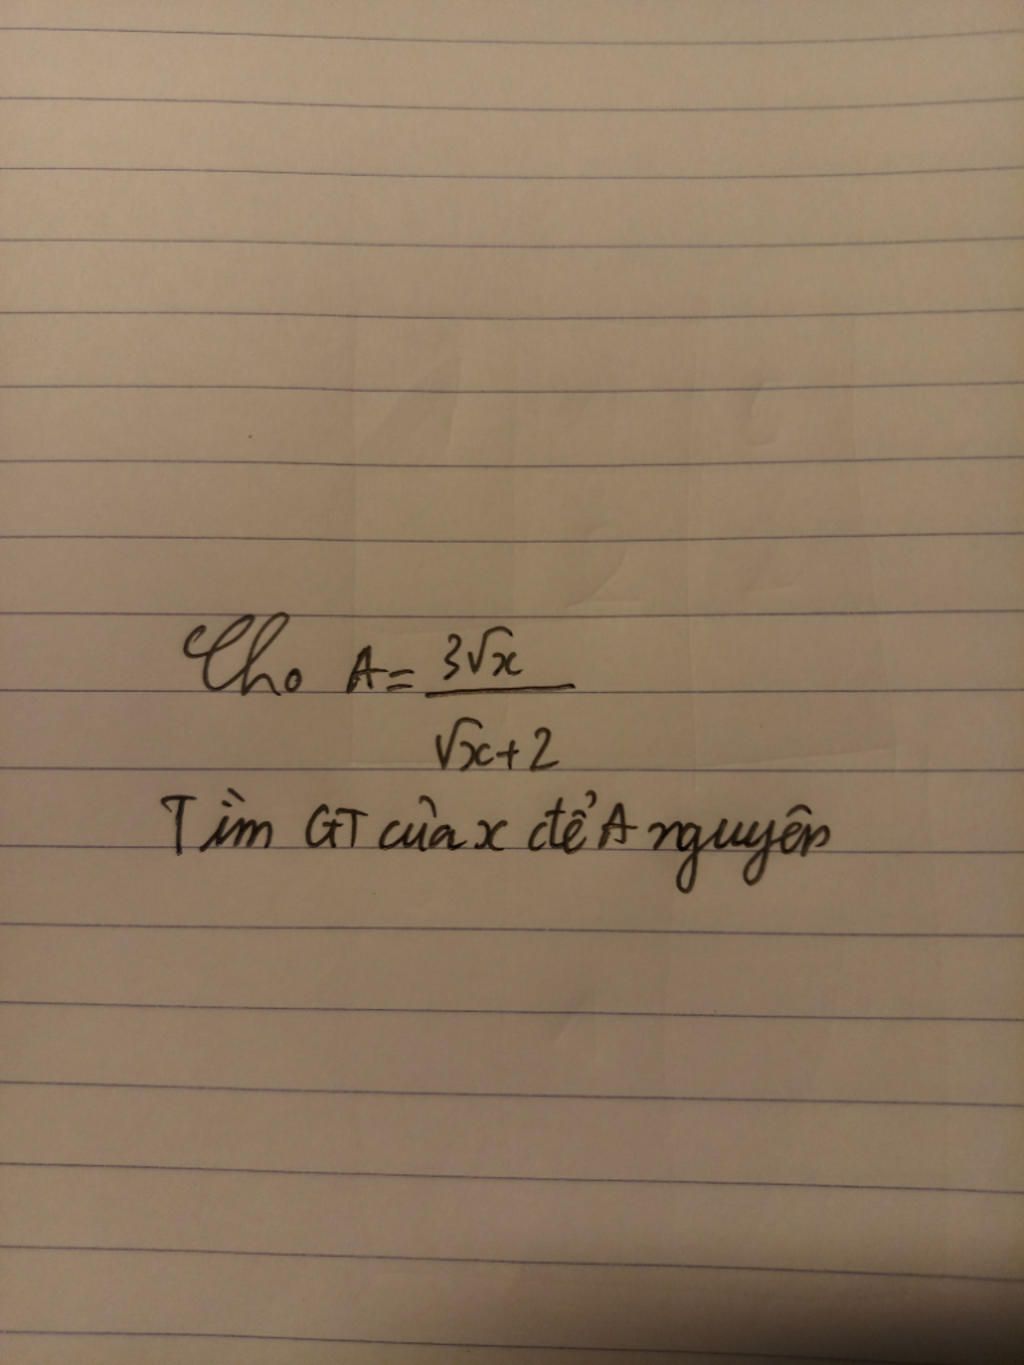 Cho A = 3√x / √x + 2
Tìm GT của x để A nguyên